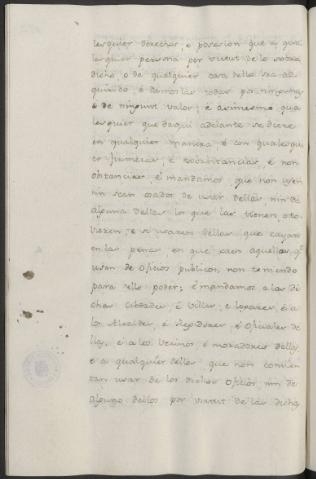 lesquier derechos, e posesion que a qua
lesquier persona por virtud de lo sobre
dicho, o de qualquier cosa dello sea ad
quirido, e damoslas todas por ningunas,
e de ningunt valor, e asimesmo qua
lesquier que de aqui adelante se diere
en qualquier manera, e con qualesqui
er firmezas, e non
obstancias, e mandamos que non usen
nin sean osados de usar dellas, nin de
alguna dellas lo que las tienen, o to
vieren, e si usaren dellas que cayan
en las penas en que caen aquellos, q.e
usan de Oficios publicos, non teniendo
para ello poder; e mandamos a las di
chas Cibdades, e Villas, e lugares, e a
los Alcaldes, e Regidores, e Oficiales de
llas, e a los Vecinos, e moradores dellas,
e a qualquier dellas que non consien
tan usar de los dichos Oficios, nin de
alguno dellos por virtud de las dichas